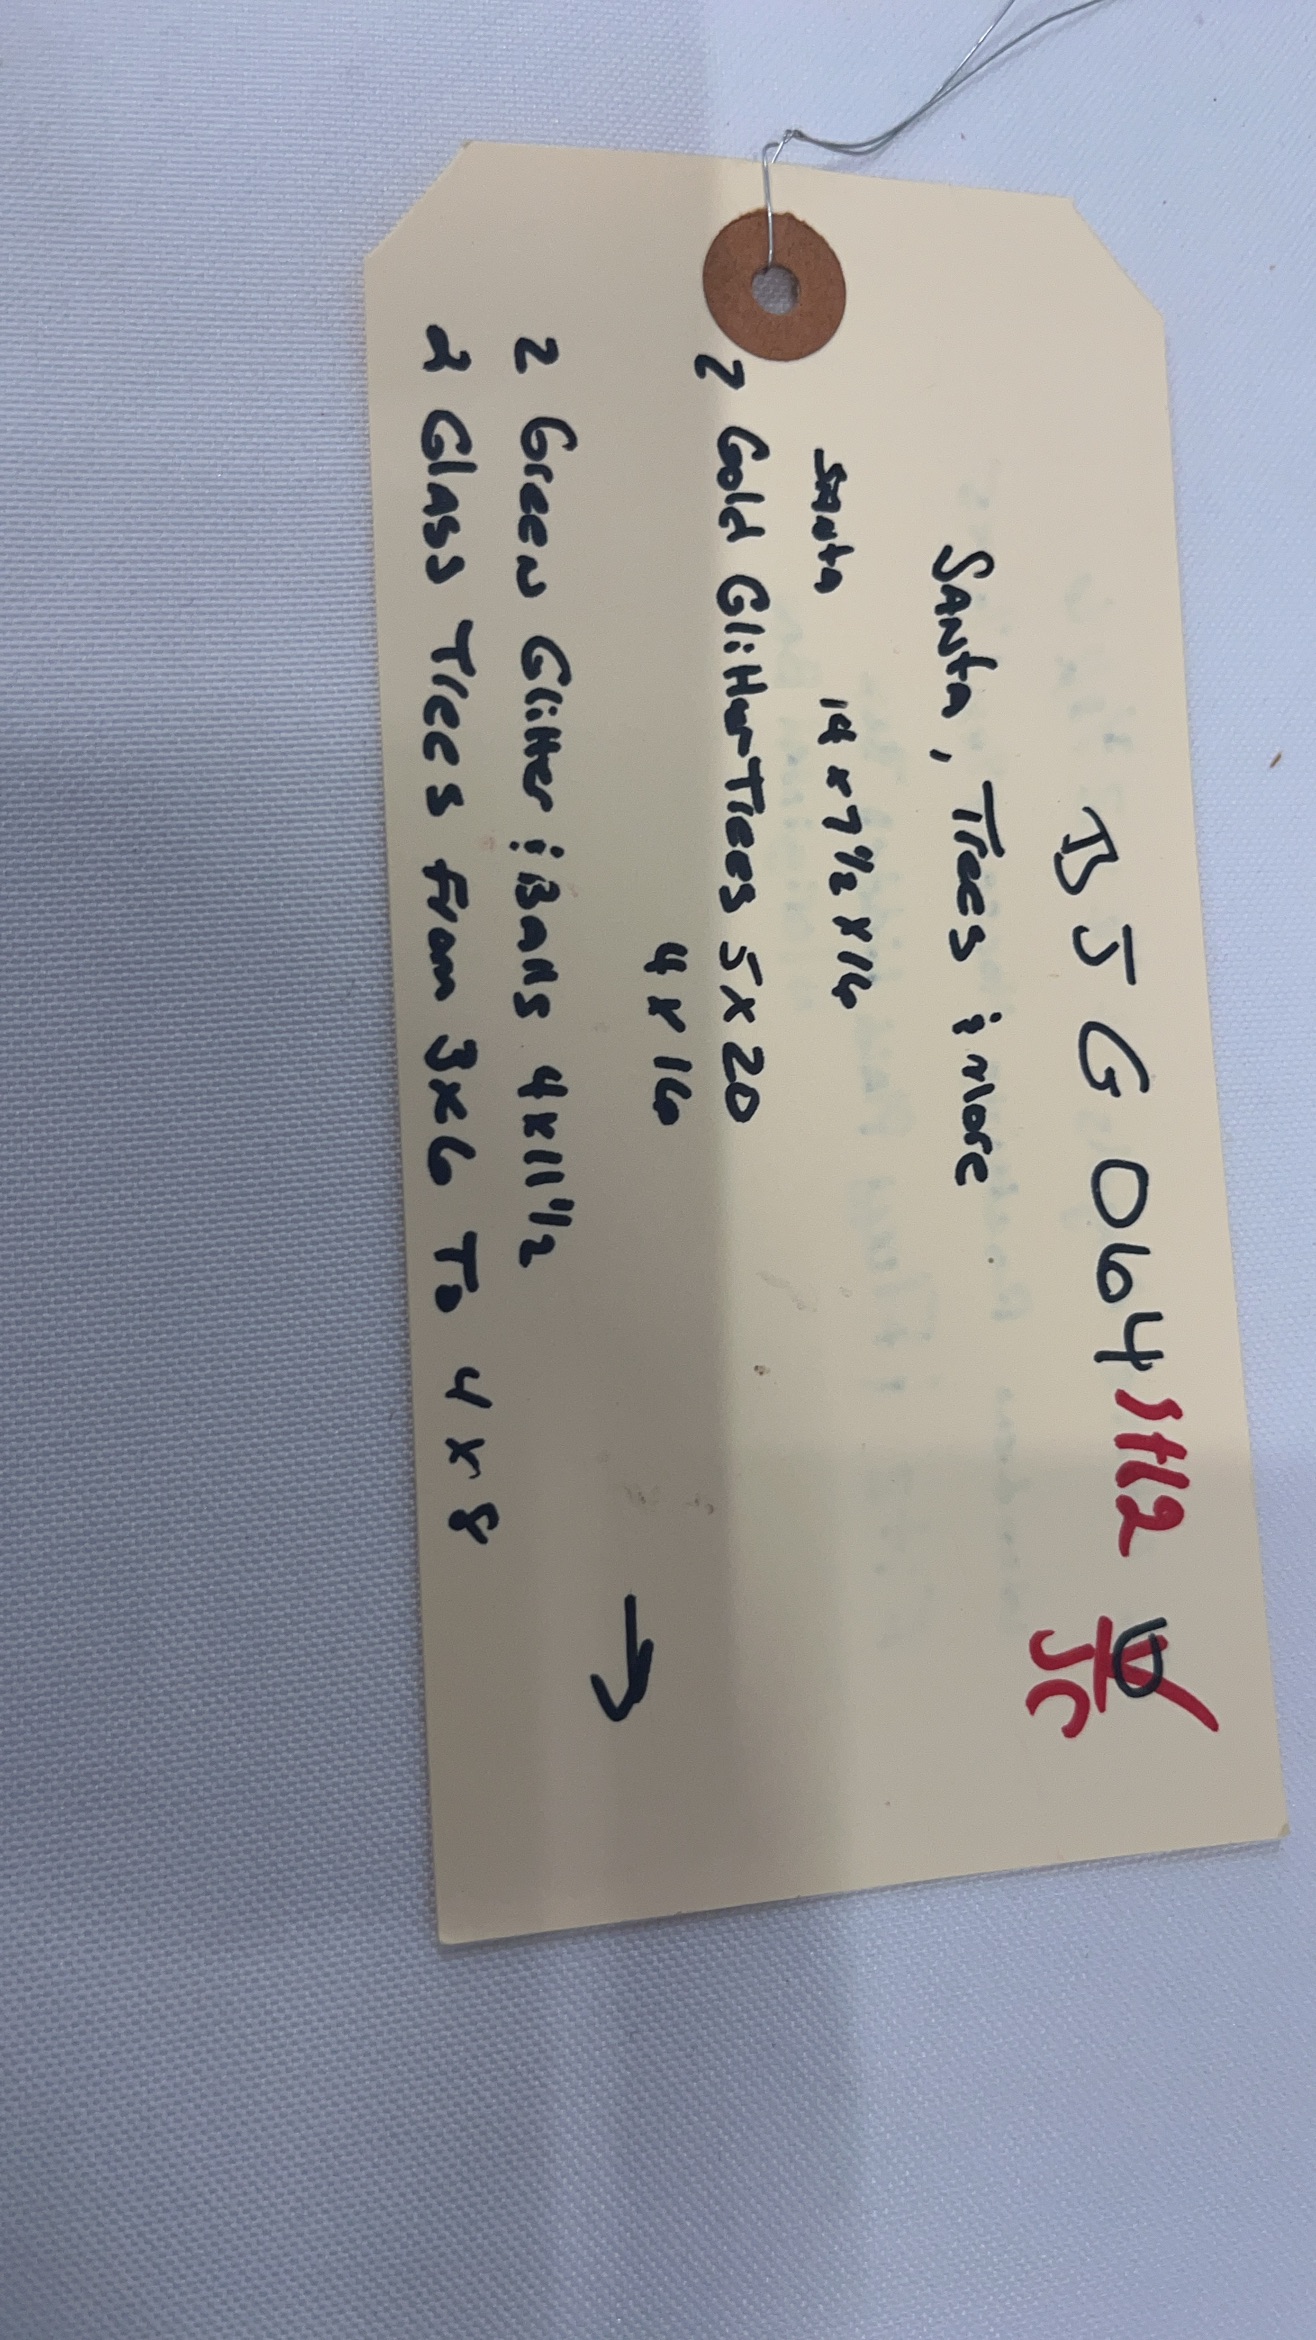 BJG 064 SH2
JC
Santa, Trees & more
Santa 14 x 7 1/2 x 16
2 Gold Glitter Trees 5 x 20
4 x 16
2 Green Glitter & Balls 4 x 11 1/2
2 Glass Trees from 3x6 To 4 x 8
→